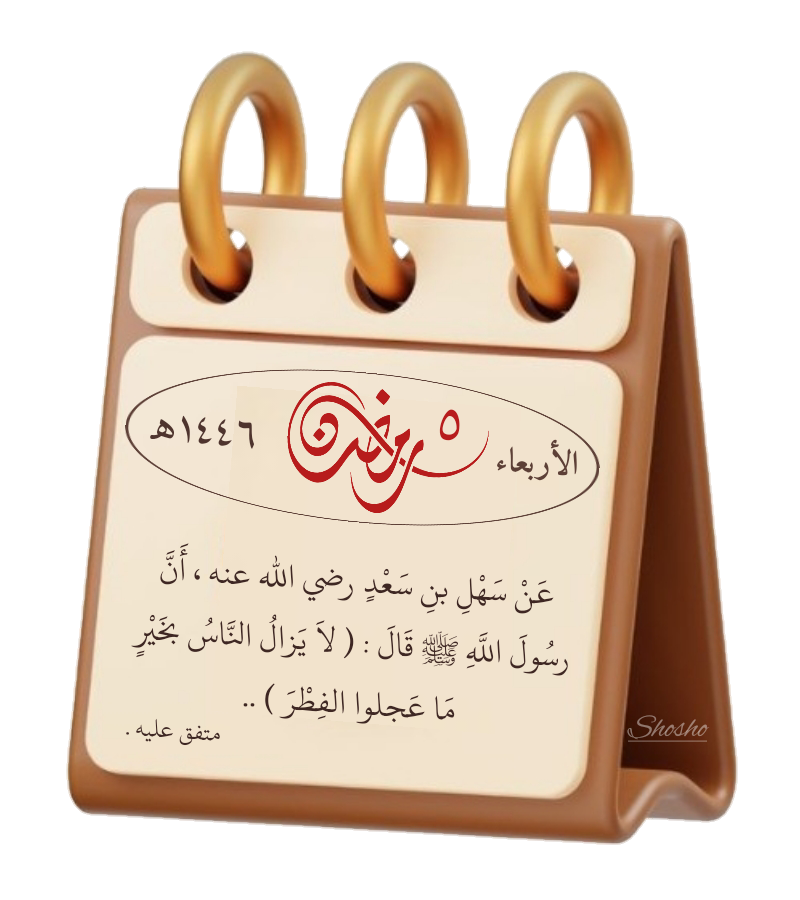 الأربعاء ٥ رمضان ١٤٤٦هـ
عَنْ سَهْلِ بنِ سَعْدٍ رضي الله عنه ، أَنَّ
رسُولَ اللَّهِ ﷺ قَالَ : ( لاَ يَزالُ النَّاسُ بخَيْرٍ
مَا عَجلوا الفِطْرَ ) ..
متفق عليه .
Shosho